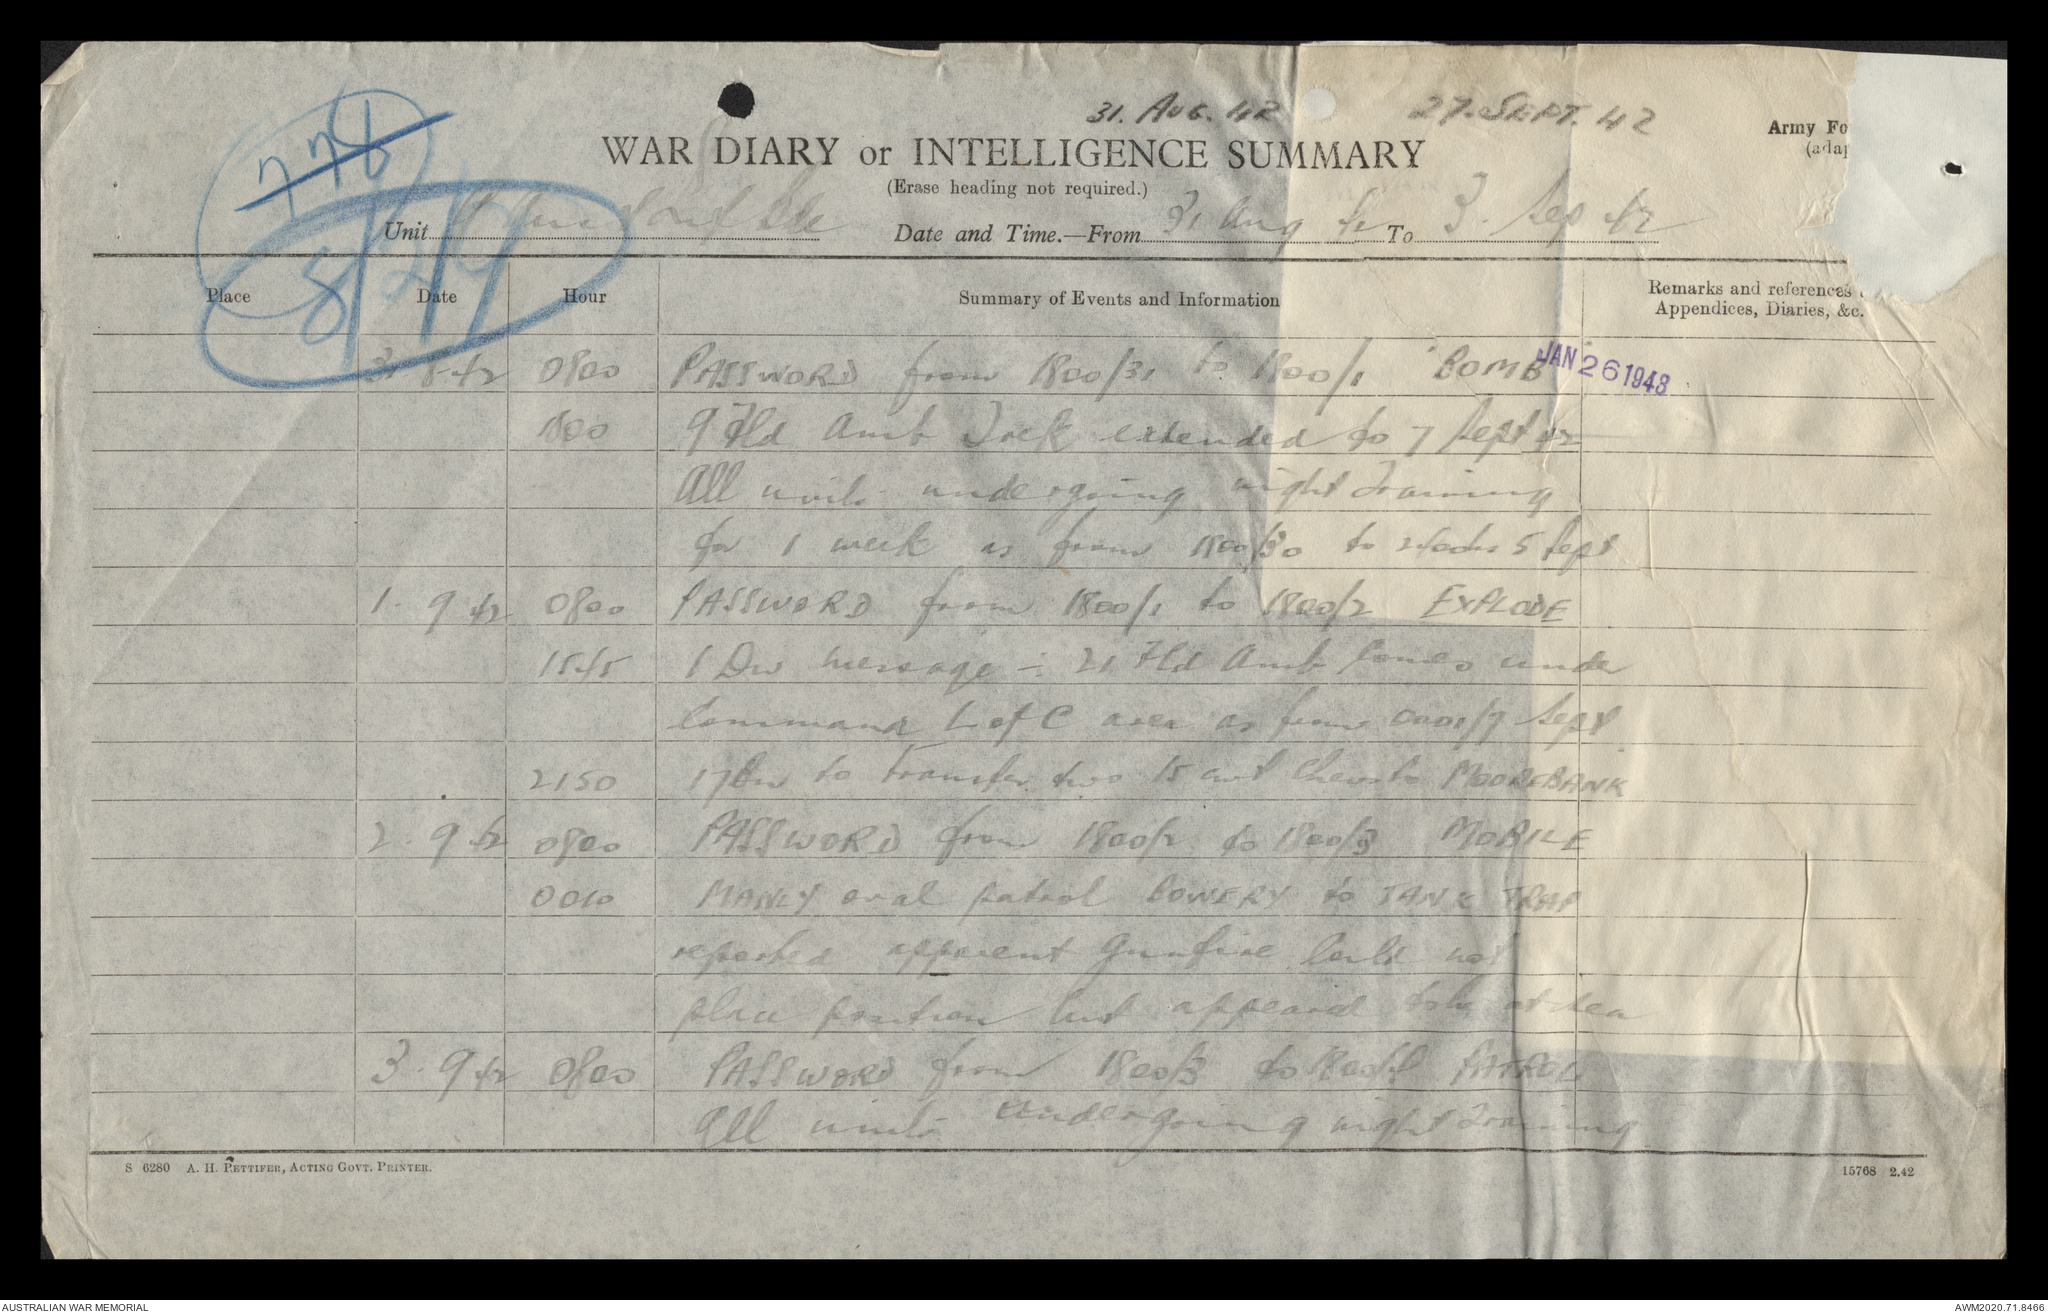 31. AUG. 42 27. SEPT. 42
778
Army Fo
(adap
WAR DIARY or INTELLIGENCE SUMMARY
(Erase heading not required.)
Unit Date and Time.—From 31 Aug 42 To 3. Sep 42
8/2/17
Place Date Hour Summary of Events and Information Remarks and references
Appendices, Diaries, &c.
JAN 26 1943
31 8 42 0800 PASSWORD from 1800/31 to 1800/1 BOMB
1800 9 Fld Amb Trek extended to 7 Sept 42
All units undergoing night training
for 1 week as from 1800/30 to 5 Sept
1. 9 42 0800 PASSWORD from 1800/1 to 1800/2 EXPLODE
1545 1 Div message :- 21 Fld Amb comes under
Command L of C area as from 0001/7 Sept
2150 to transfer two 15 cwt Chevs to MOOREBANK
2. 9 42 0800 PASSWORD from 1800/2 to 1800/3 MOBILE
0010 MANLY oval patrol BOWERY to TANK TRAP
reported apparent gunfire could not
place position but appeared to be at sea
3. 9 42 0800 PASSWORD from 1800/3 to 1800/4 PATROL
All units undergoing night training
S 6280 A. H. PETTIFER, ACTING GOVT. PRINTER. 15768 2.42
AUSTRALIAN WAR MEMORIAL AWM2020.71.8466